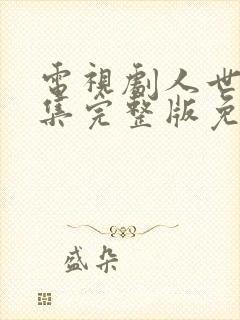 電視劇人世
集完整版免
盛朵